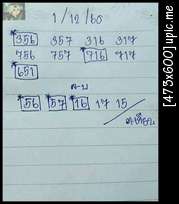 1/12/60
356 357 316 317
756 757 716 717
651
ล-บ
56 57 16 17 15
[473x600] upic.me